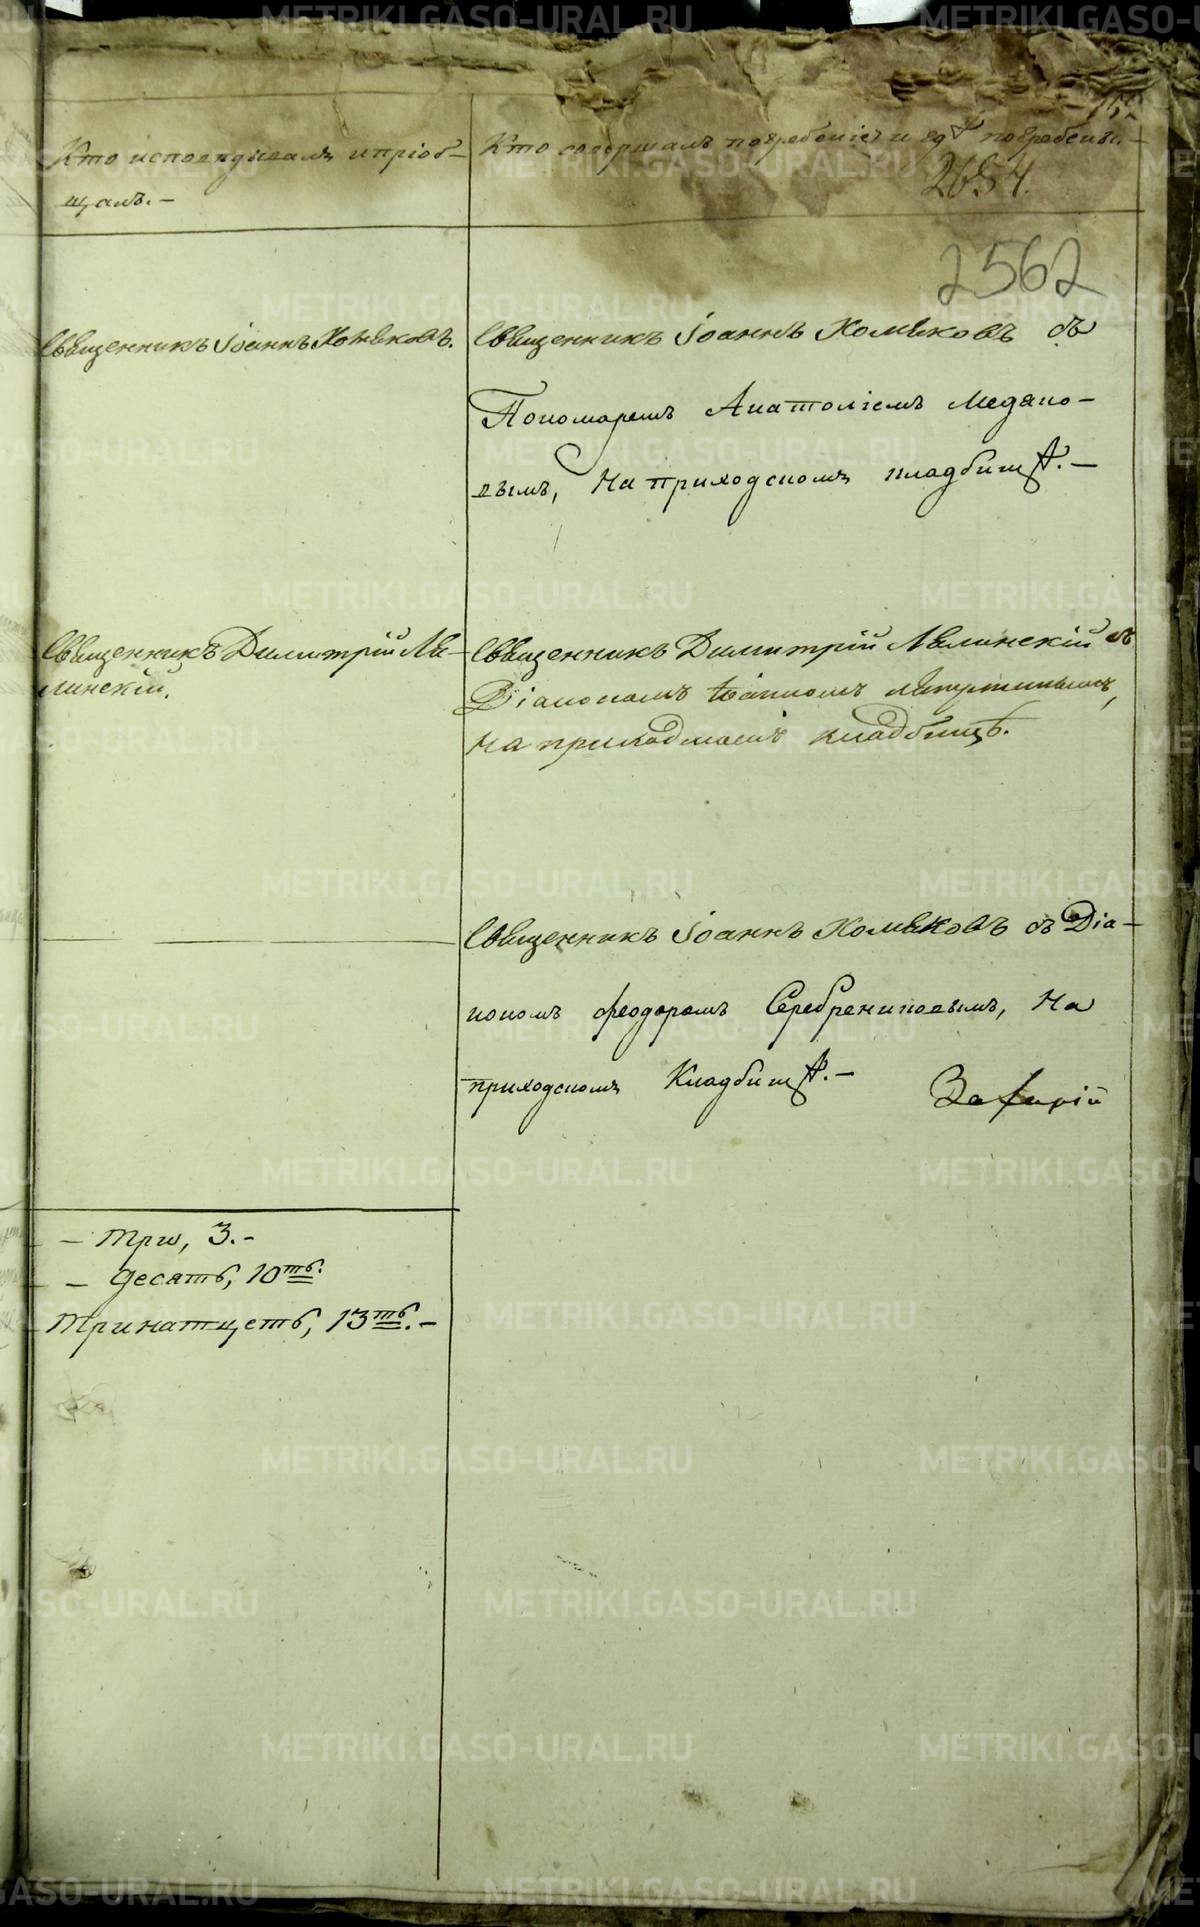 Кто исповѣдывалъ и пріоб-
щалъ. -
Кто совершалъ погребеніе и гдѣ погребены. -
2654.
2562
Священникъ Іоаннъ Хомяковъ.
Священникъ Іоаннъ Хомяковъ съ
Пономаремъ Анатоліемъ
вымъ, На приходскомъ кладбищѣ. -
Священникъ Димитрій
линскій.
Священникъ Димитрій съ
Діакономъ Іоанномъ
на приходскомъ кладбищѣ.
Священникъ Іоаннъ Хомяковъ съ Діа-
кономъ Феодоромъ Серебрениковымъ, На
приходскомъ Кладбищѣ. -
- три, 3. -
- десять, 10ть.
Тринатцеть, 13ть. -
METRIKI.GASO-URAL.RU